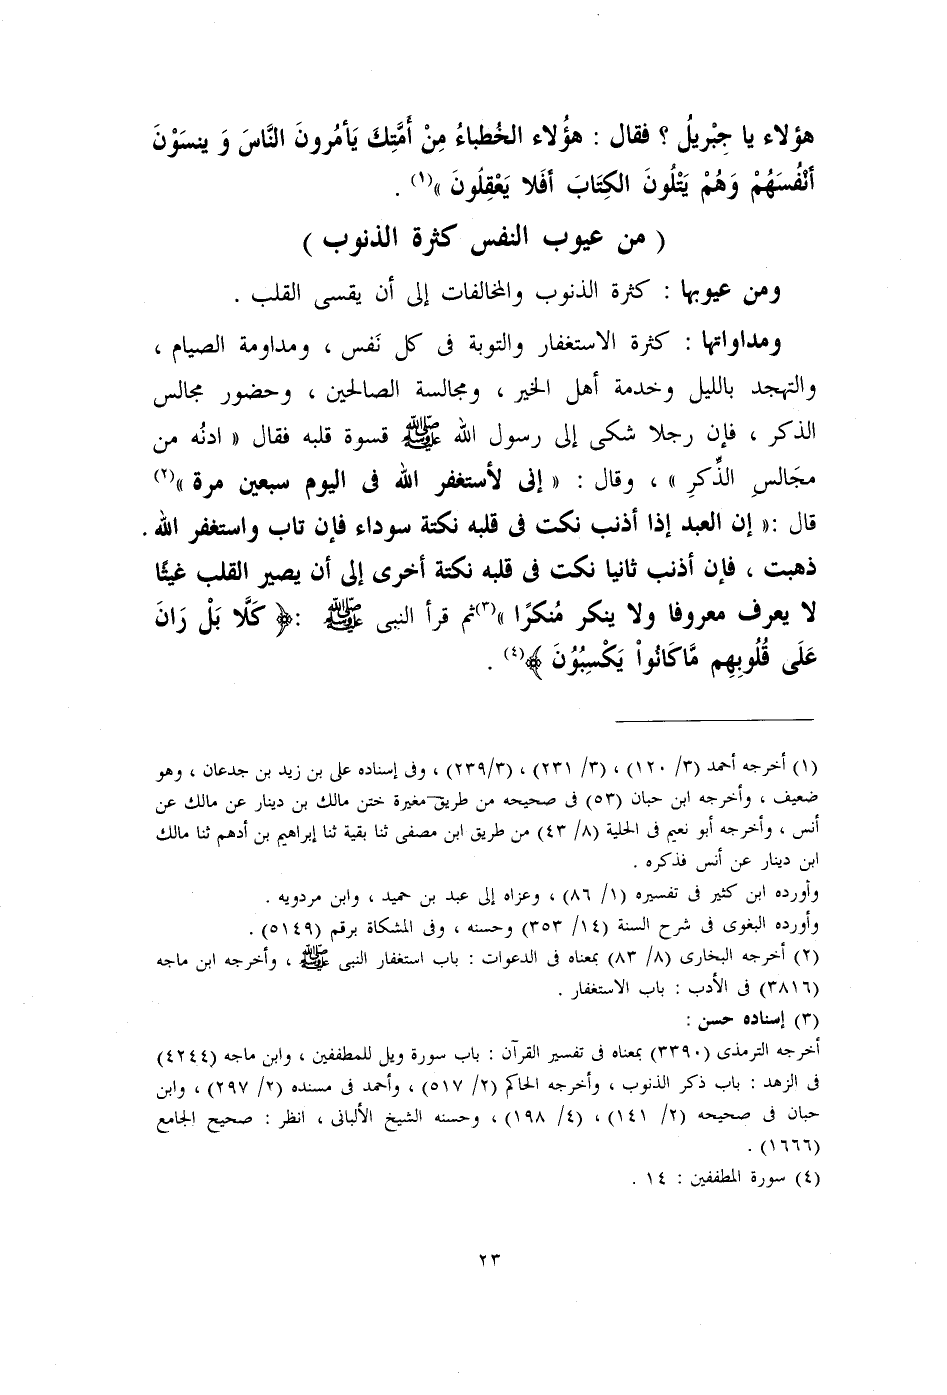 هؤلاء يا جِبْريلُ ؟ فقال : هؤُلاء الخُطباءُ مِنْ أُمَّتِكَ يَأمُرونَ النَّاسَ وَ ينسَوْنَ
أنْفُسَهُمْ وَهُمْ يَتْلُونَ الكِتَابَ أفَلا يَعْقِلُونَ »(١) .
( من عيوب النفس كثرة الذنوب )
ومن عيوبها : كثرة الذنوب والمخالفات إلى أن يقسى القلب .
ومداواتها : كثرة الاستغفار والتوبة فى كل نَفس ، ومداومة الصيام ،
والتهجد بالليل وخدمة أهل الخير ، ومجالسة الصالحين ، وحضور مجالس
الذكر ، فإن رجلا شكى إلى رسول الله ﷺ قسوة قلبه فقال « ادنُه من
مجَالسِ الذِّكرِ » ، وقال : « إنى لأستغفر الله فى اليوم سبعين مرة »(٢)
قال :« إن العبد إذا أذنب نكت فى قلبه نكتة سوداء فإن تاب واستغفر الله .
ذهبت ، فإن أذنب ثانيا نكت فى قلبه نكتة أخرى إلى أن يصير القلب غيثًا
لا يعرف معروفا ولا ينكر مُنكرًا »(٣)ثم قرأ النبى ﷺ :﴿ كَلَّا بَلْ رَانَ
عَلَى قُلُوبِهِم مَّاكَانُواْ يَكْسِبُونَ ﴾(٤) .
(١) أخرجه أحمد (٣/ ١٢٠) ، (٣/ ٢٣١) ، (٢٣٩/٣) ، وفى إسناده على بن زيد بن جدعان ، وهو
ضعيف ، وأخرجه ابن حبان (٥٣) فى صحيحه من طريق مغيرة ختن مالك بن دينار عن مالك عن
أنس ، وأخرجه أبو نعيم فى الحلية (٨/ ٤٣) من طريق ابن مصفى ثنا بقية ثنا إبراهيم بن أدهم ثنا مالك
ابن دينار عن أنس فذكره .
وأورده ابن كثير فى تفسيره (١/ ٨٦) ، وعزاه إلى عبد بن حميد ، وابن مردويه .
وأورده البغوى فى شرح السنة (١٤/ ٣٥٣) وحسنه ، وفى المشكاة برقم (٥١٤٩) .
(٢) أخرجه البخارى (٨/ ٨٣) بمعناه فى الدعوات : باب استغفار النبى ﷺ ، وأخرجه ابن ماجه
(٣٨١٦) فى الأدب : باب الاستغفار .
(٣) إسناده حسن :
أخرجه الترمذى (٣٣٩٠) بمعناه فى تفسير القرآن : باب سورة ويل للمطففين ، وابن ماجه (٤٢٤٤)
فى الزهد : باب ذكر الذنوب ، وأخرجه الحاكم (٢/ ٥١٧) ، وأحمد فى مسنده (٢/ ٢٩٧) ، وابن
حبان فى صحيحه (٢/ ١٤١) ، (٤/ ١٩٨) ، وحسنه الشيخ الألبانى ، انظر : صحيح الجامع
(١٦٦٦) .
(٤) سورة المطففين : ١٤ .
٢٣